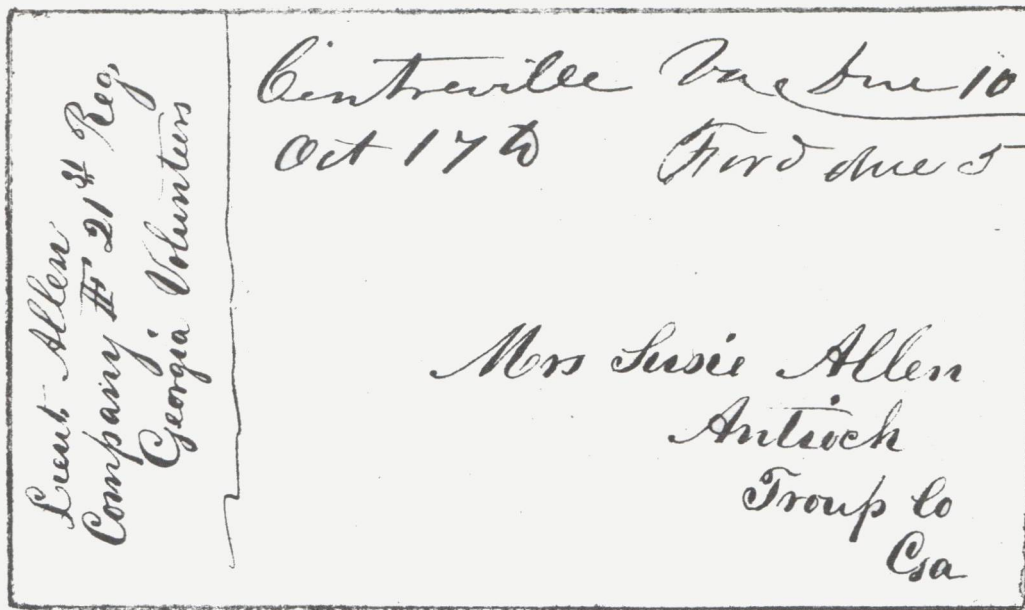 Lieut Allen
Company F 21st Reg,
Georgia Volunteers
Centreville Va Due 10
Oct 17th Ford due 5
Mrs Susie Allen
Antioch
Troup Co
Ga